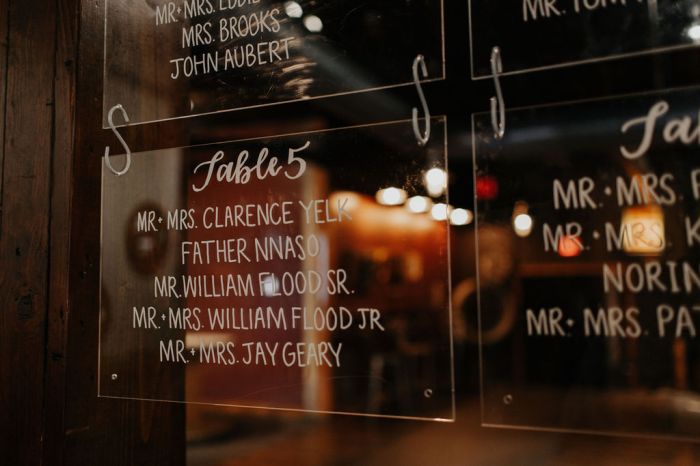 MR + MRS. EDDIE
MRS. BROOKS
JOHN AUBERT
MR. TOM
Table 5
MR + MRS. CLARENCE YELK
FATHER NNASO
MR. WILLIAM FLOOD SR.
MR. + MRS. WILLIAM FLOOD JR
MR. + MRS. JAY GEARY
MR. + MRS. F
MR. + MRS. K
NORIN
MR. + MRS. PA